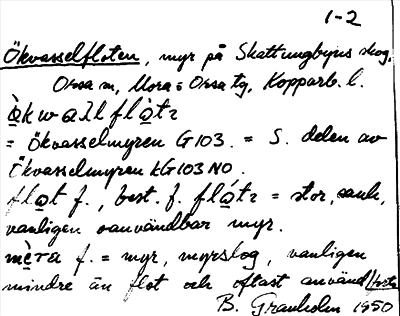 1-2
Ökvasselfloten, myr på Skattungbyns skog,
Orsa sn, Mora o Orsa tg, Kopparb. l.
= Ökvasselmyren G103. = S. delen av
Ökvasselmyren kG103 NO.
flo̱t f., best. f. = stor, sank,
vanligen oanvändbar myr.
f. = myr, myrslog, vanligen
mindre än flot och oftast använd
B. Granholm 1950